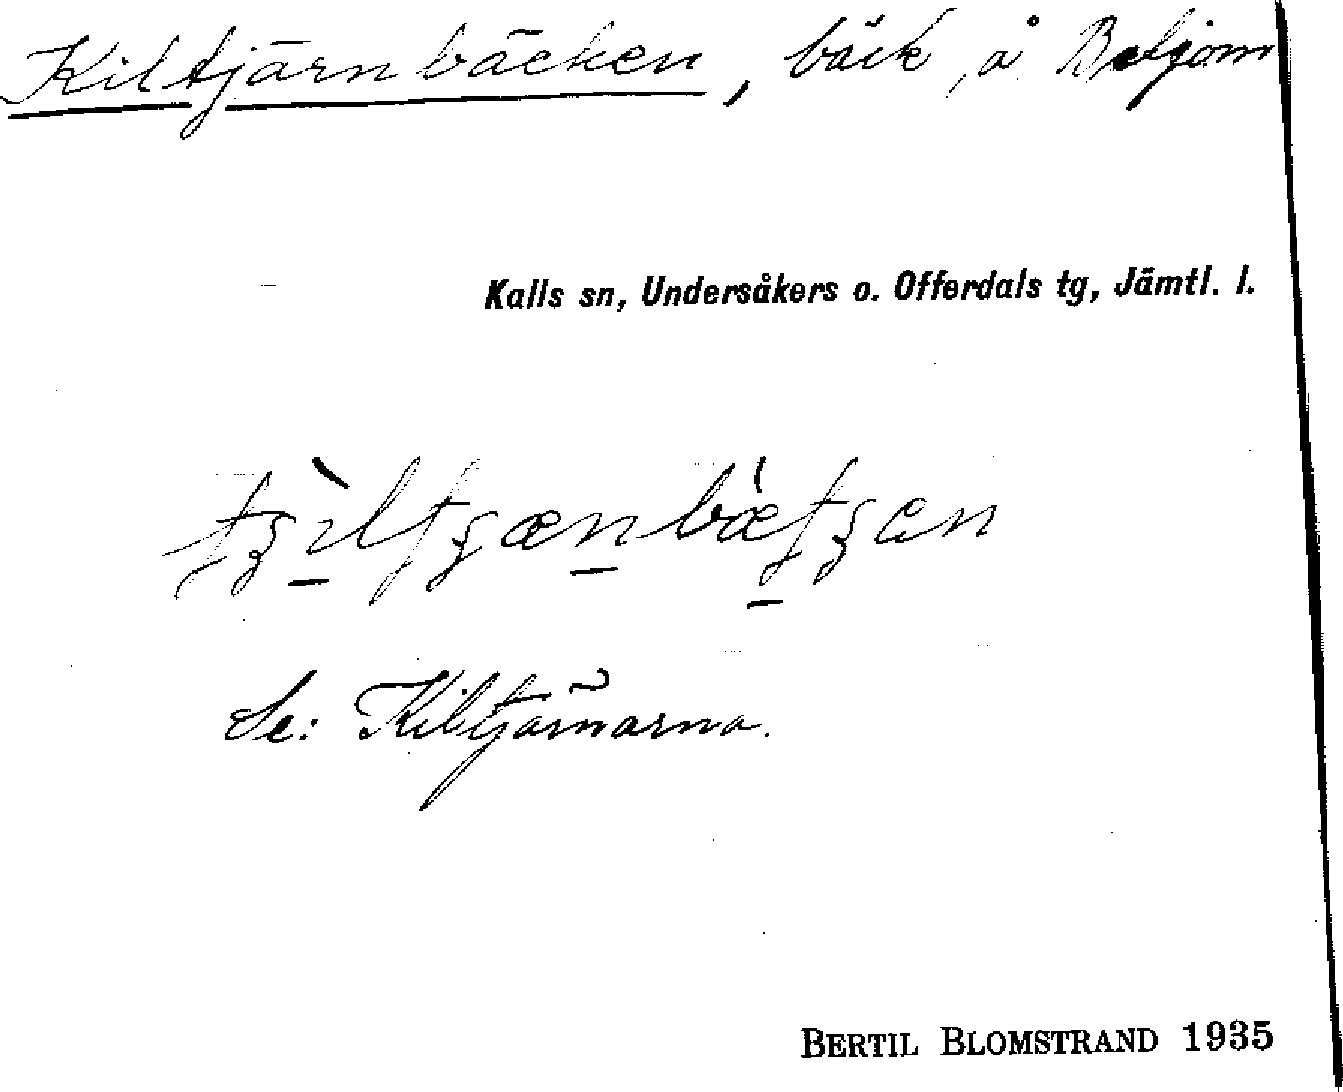 Kiltjärnbäcken, bäck, å
Kalls sn, Undersåkers o. Offerdals tg, Jämtl. l.
Se: Kiltjärnarna.
BERTIL BLOMSTRAND 1935